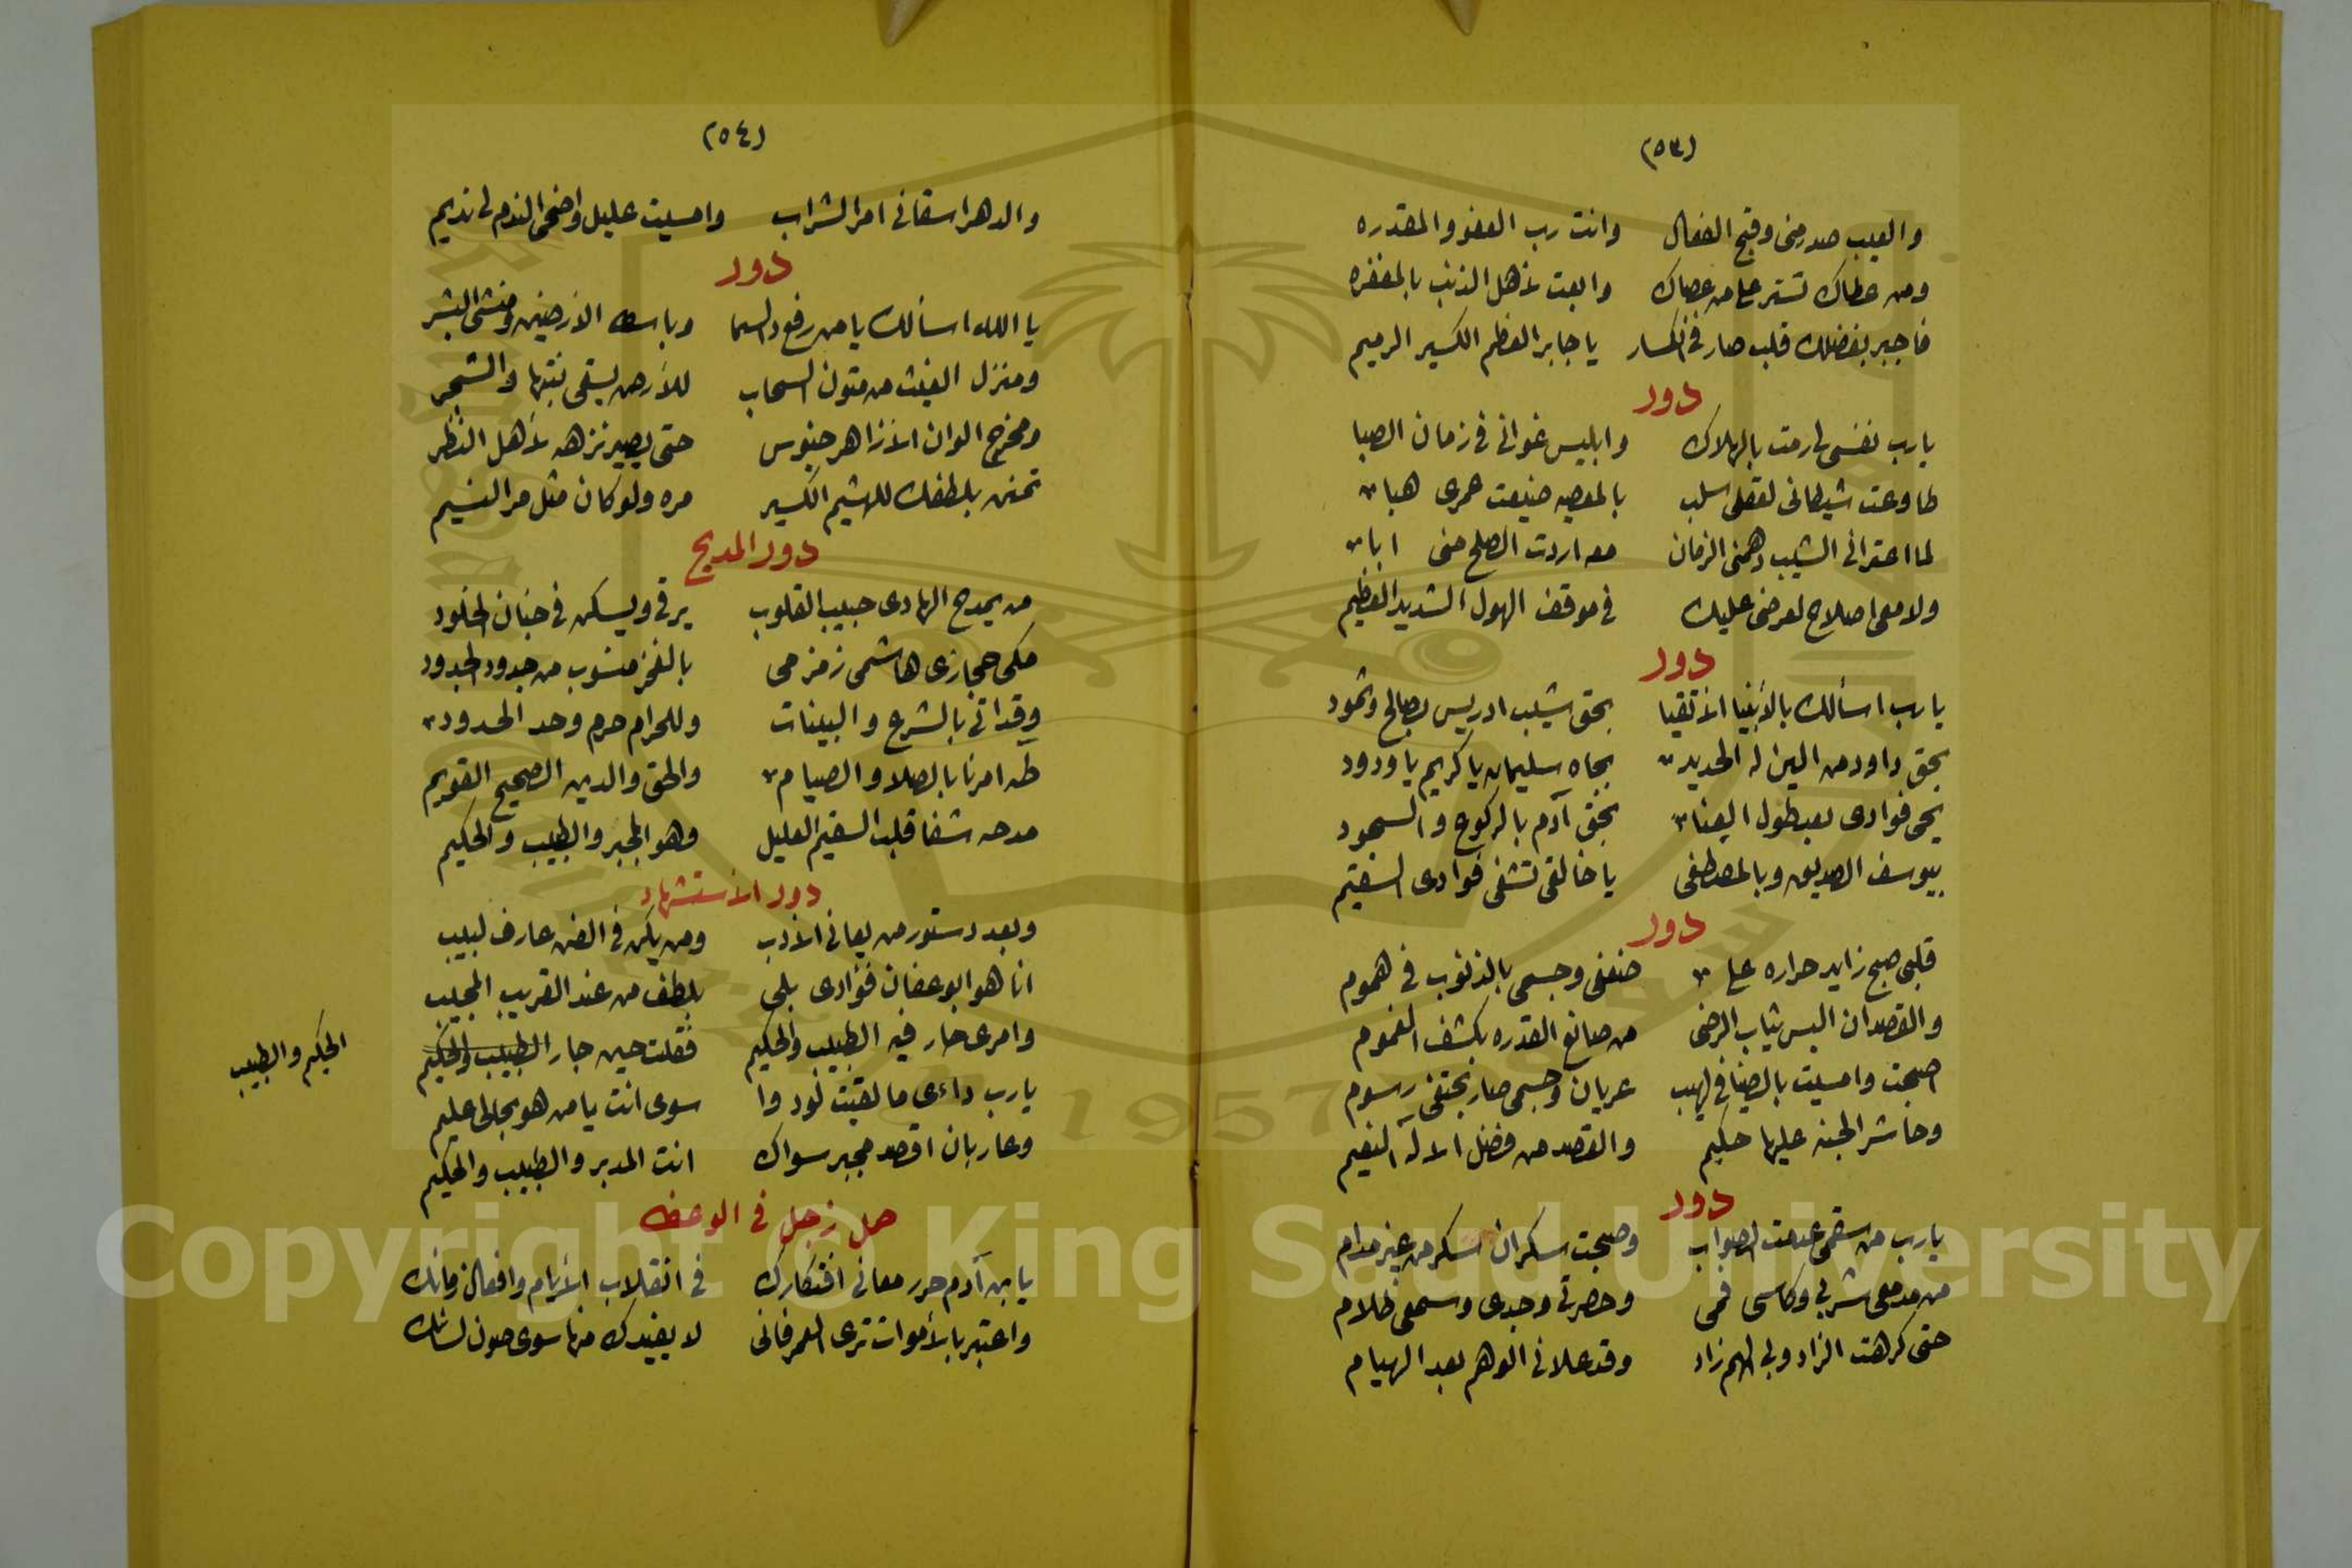 (٥٣)
والعيب صدر مني وقبح الفعال وانت رب العفو والمقدره
ومن عطاك تستر على من عصاك وابعت لاهل الذنب بالمغفره
فاجبر بفضلك قلب صار في انكسار يا جابر العظم الكسير الرميم
دور
يارب نفسي لي رمت بالهلاك وابليس غواني في زمان الصبا
طاوعت شيطاني لعقلي سلب بالمعصيه ضيعت عمري هبا
لما اعتراني الشيب دهمني الزمان منه اردت الصلح مني ابا
ولا معي اصلاح لعرضي عليك في موقف الهول الشديد العظيم
دور
يارب اسألك بالأنبيا الأتقيا بحق شيب ادريس بصالح وثمود
بحق داود من الين له الحديد بجاه سليمان يا كريم يا ودود
يحي فوادي بعد طول العنا بحق آدم بالركوع والسجود
بيوسف الصديق وبالمصطفى يا خالقي تشفي فوادي السقيم
دور
قلبي صبح زايد حراره على ضعفي وجسمي بالذنوب في هموم
والقصد ان البس ثياب الرضى من صانع القدره بكشف الغموم
اصبحت وامسيت بالضنا في لهيب عريان وجسمي صار بختفي رسوم
وحاشر الجنه عليها حكيم والقصد من فضل الاله النعيم
دور
يارب من سقمي عدمت الصواب وصبحت سكران اسكر من غير مدام
من مدمعي شربي وكاسي فمي وحضرتي وجدي وسمعي ظلام
حتى كرهت الزاد ولي الهم زاد وقد علاني الوهم بعد الهيام
(٥٤)
والدهر اسقاني امر الشراب وامسيت عليل واضحى الندم لي نديم
دور
يا الله اسألك يا من رفع السما وباسط الأرضين ومنشى البشر
ومنزل الغيث من متون السحاب للأرض يسقي نبتها والشجر
ومخرج الوان الأزاهر جنوس حتى يصير نزهه لأهل النظر
تمنن بلطفك للهشيم الكسير مره ولو كان مثل مر النسيم
دور المديح
من يمدح الهادي حبيب القلوب يرقى ويسكن في جنان الخلود
مكي حجازي هاشمي زمزمي بالفخر منسوب من جدود لجدود
وقد اتى بالشرع والبينات وللحرام حرم وحد الحدود
طه امرنا بالصلا والصيام والحق والدين الصحيح القويم
مدحه شفا قلب السقيم العليل وهو المجبر والطبيب والحكيم
دور الأستشهاد
وبعد دستور من يعاني الأدب ومن يكن في الفن عارف لبيب
انا هو ابو عفان فؤادي بلي بلطف من عند القريب المجيب
وامري حار فيه الطبيب والحكيم فقلت حين حار الطبيب والحكيم
الحكيم والطبيب
يارب داءي ما لقيت لو دوا سوى انت يا من هو بحالي عليم
وعار بان اقصد مجبر سواك انت المدبر والطبيب والحكيم
حمل زجل في الوعظ
يا بن آدم حرر معاني افتكارك في انقلاب الأيام وافعال زمانك
واعتبر بالأموات ترى العمر فاني لا يفيدك منها سوى صون لسانك
Copyright © King Saud University
1957